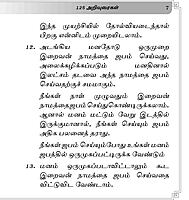 125 அறிவுரைகள் 7
இந்த முயற்சியில் தோல்வியடைந்தால்
பிறகு என்னிடம் முறையிடலாம்.
12. அடங்கிய மனதோடு ஒருமுறை
இறைவன் நாமத்தை ஜபம் செய்வது,
அலைக்கழிக்கப்படும் மனதினால்
இலட்சம் தடவை அந்த நாமத்தை ஜபம்
செய்வதற்குச் சமமாகும்.
நீங்கள் நாள் முழுவதும் இறைவன்
நாமத்தைஜபம் செய்துகொண்டிருக்கலாம்.
ஆனால் மனம் மட்டும் வேறு இடத்தில்
இருக்குமானால், நீங்கள் செய்யும் ஜபம்
அதிக பலனைத் தராது.
நீங்கள் ஜபம் செய்யும்போது உங்கள் மனம்
ஜபத்தில் ஒருமுகப்பட்டிருக்க வேண்டும்
13. மனம் ஒருமுகப்படாவிட்டாலும் கூட
இறைவன் நாமத்தை ஜபம் செய்வதை
விட்டுவிட வேண்டாம்.